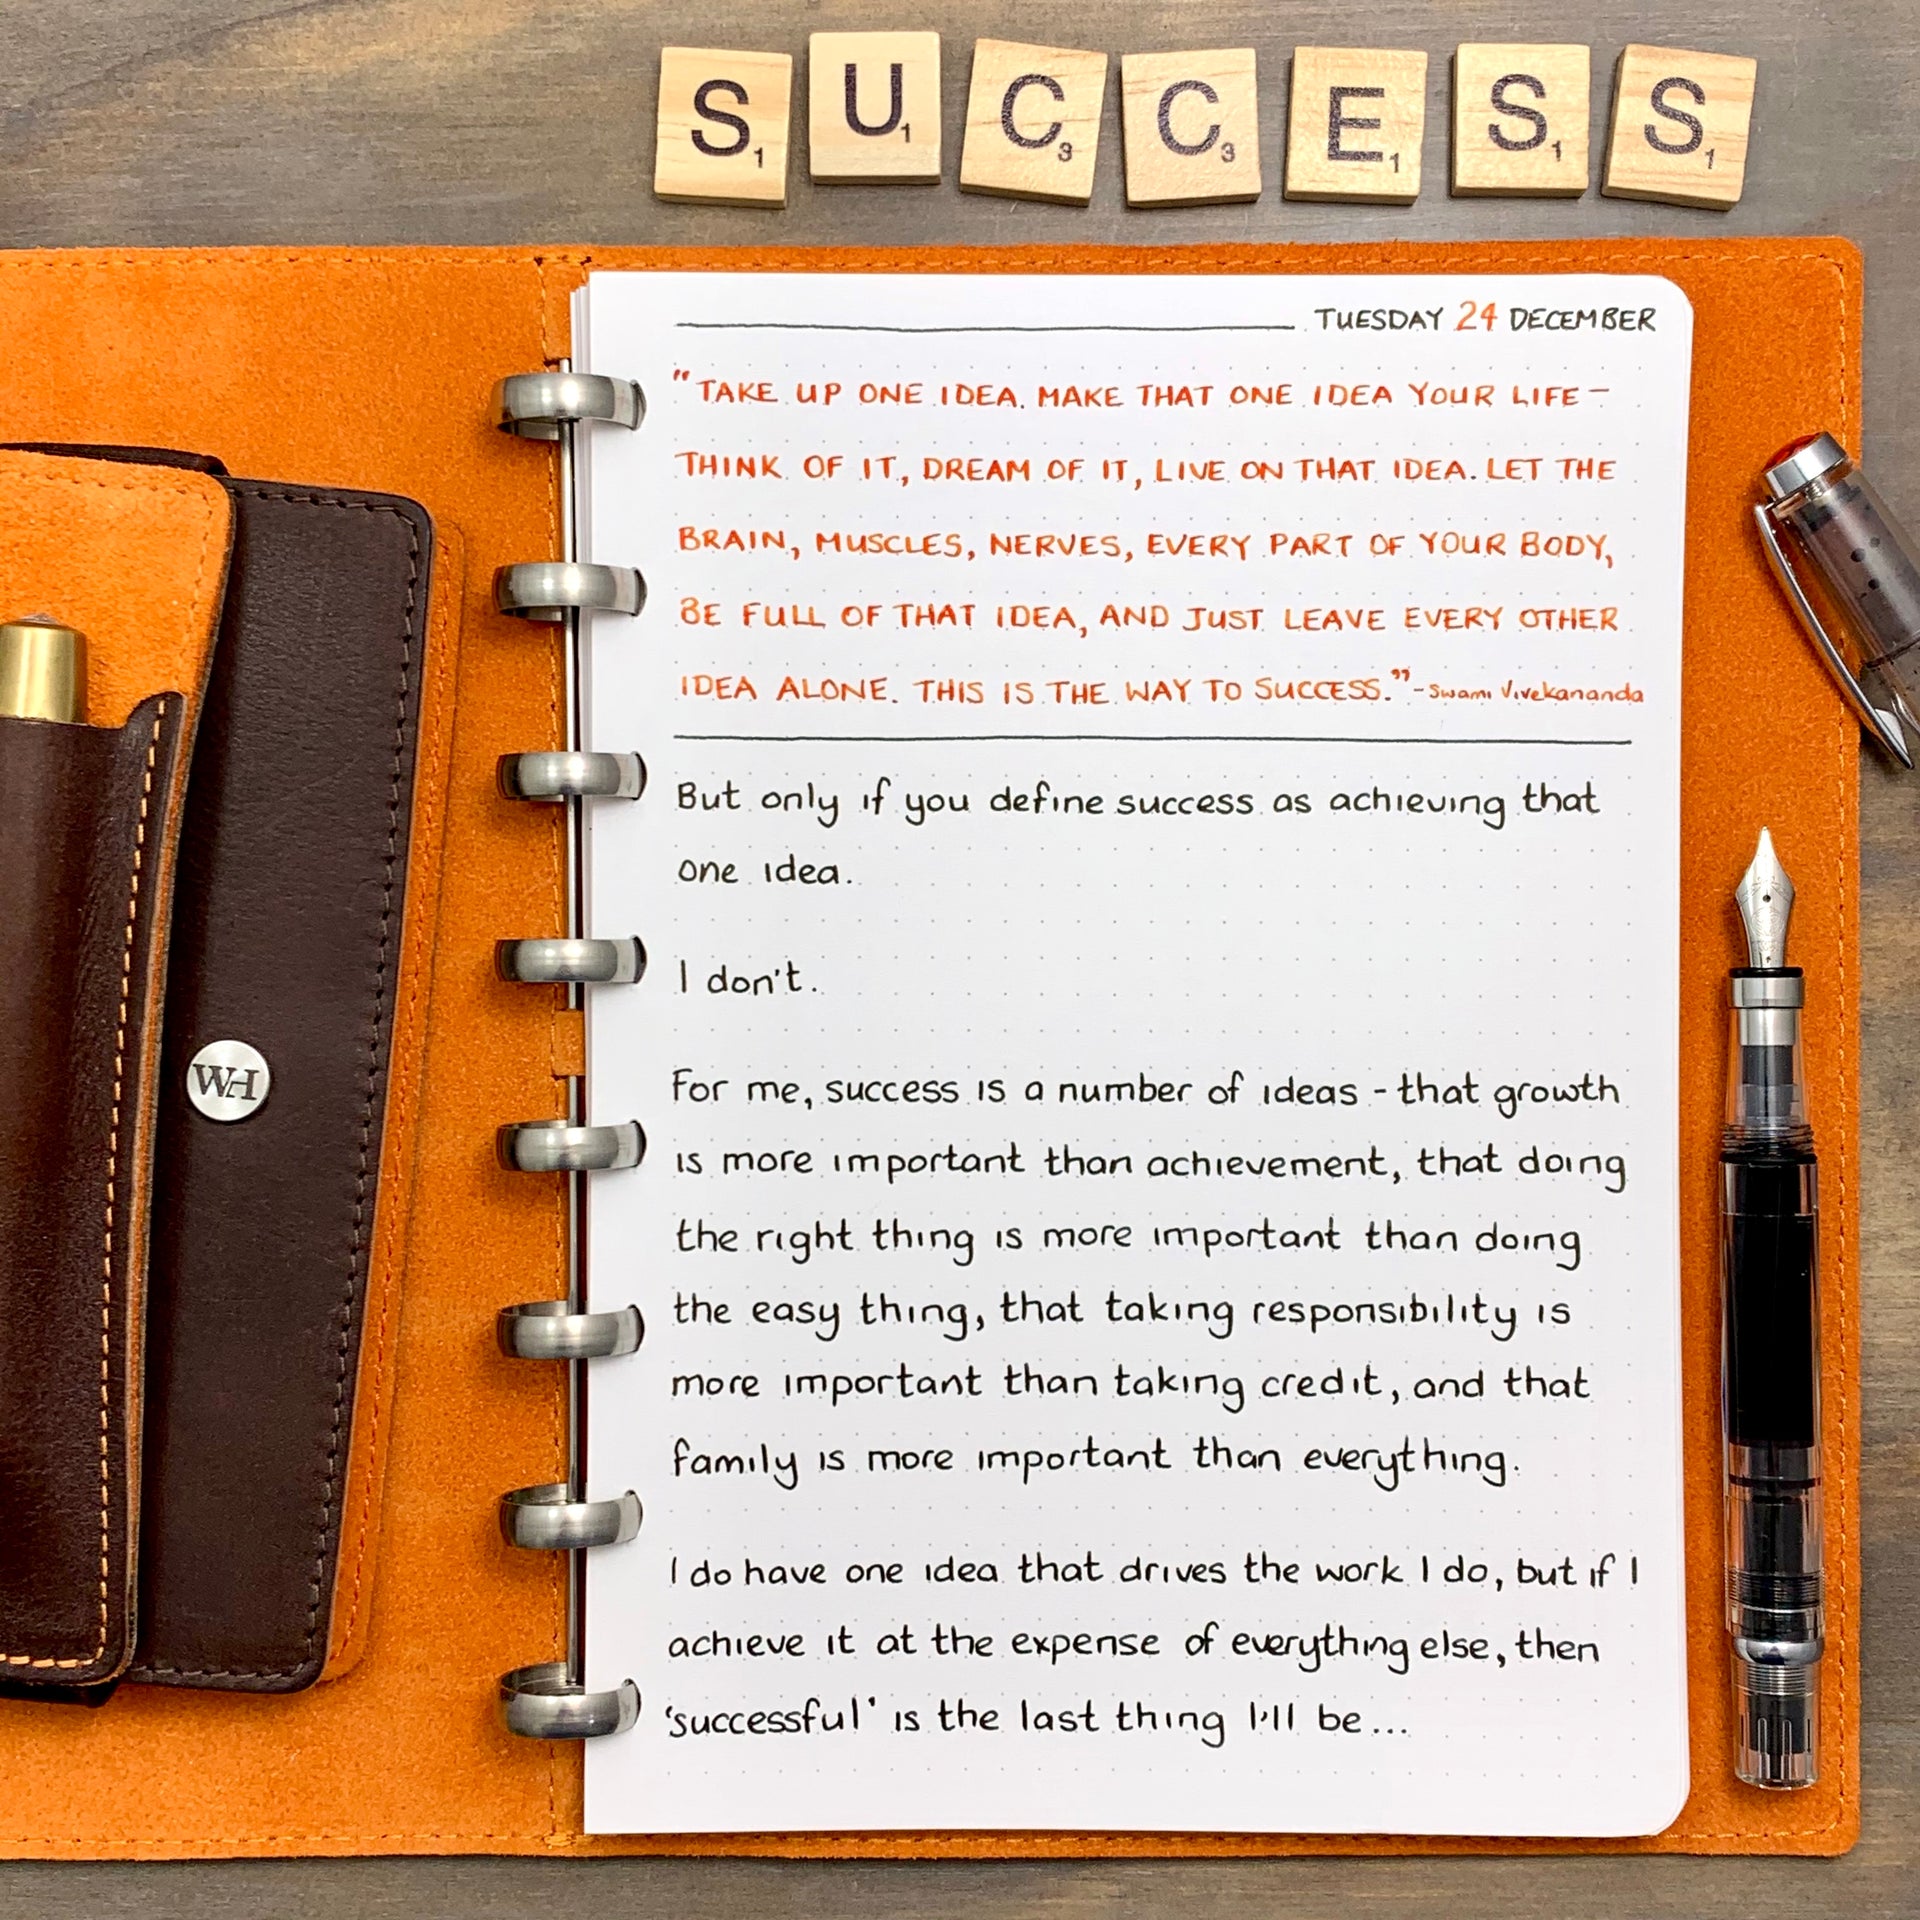 S1 U1 C3 C3 E1 S1 S1
TUESDAY 24 DECEMBER
"TAKE UP ONE IDEA. MAKE THAT ONE IDEA YOUR LIFE –
THINK OF IT, DREAM OF IT, LIVE ON THAT IDEA. LET THE
BRAIN, MUSCLES, NERVES, EVERY PART OF YOUR BODY,
BE FULL OF THAT IDEA, AND JUST LEAVE EVERY OTHER
IDEA ALONE. THIS IS THE WAY TO SUCCESS." - Swami Vivekananda
But only if you define success as achieving that
one idea.
I don't.
For me, success is a number of ideas - that growth
is more important than achievement, that doing
the right thing is more important than doing
the easy thing, that taking responsibility is
more important than taking credit, and that
family is more important than everything.
I do have one idea that drives the work I do, but if I
achieve it at the expense of everything else, then
'successful' is the last thing I'll be...
WH